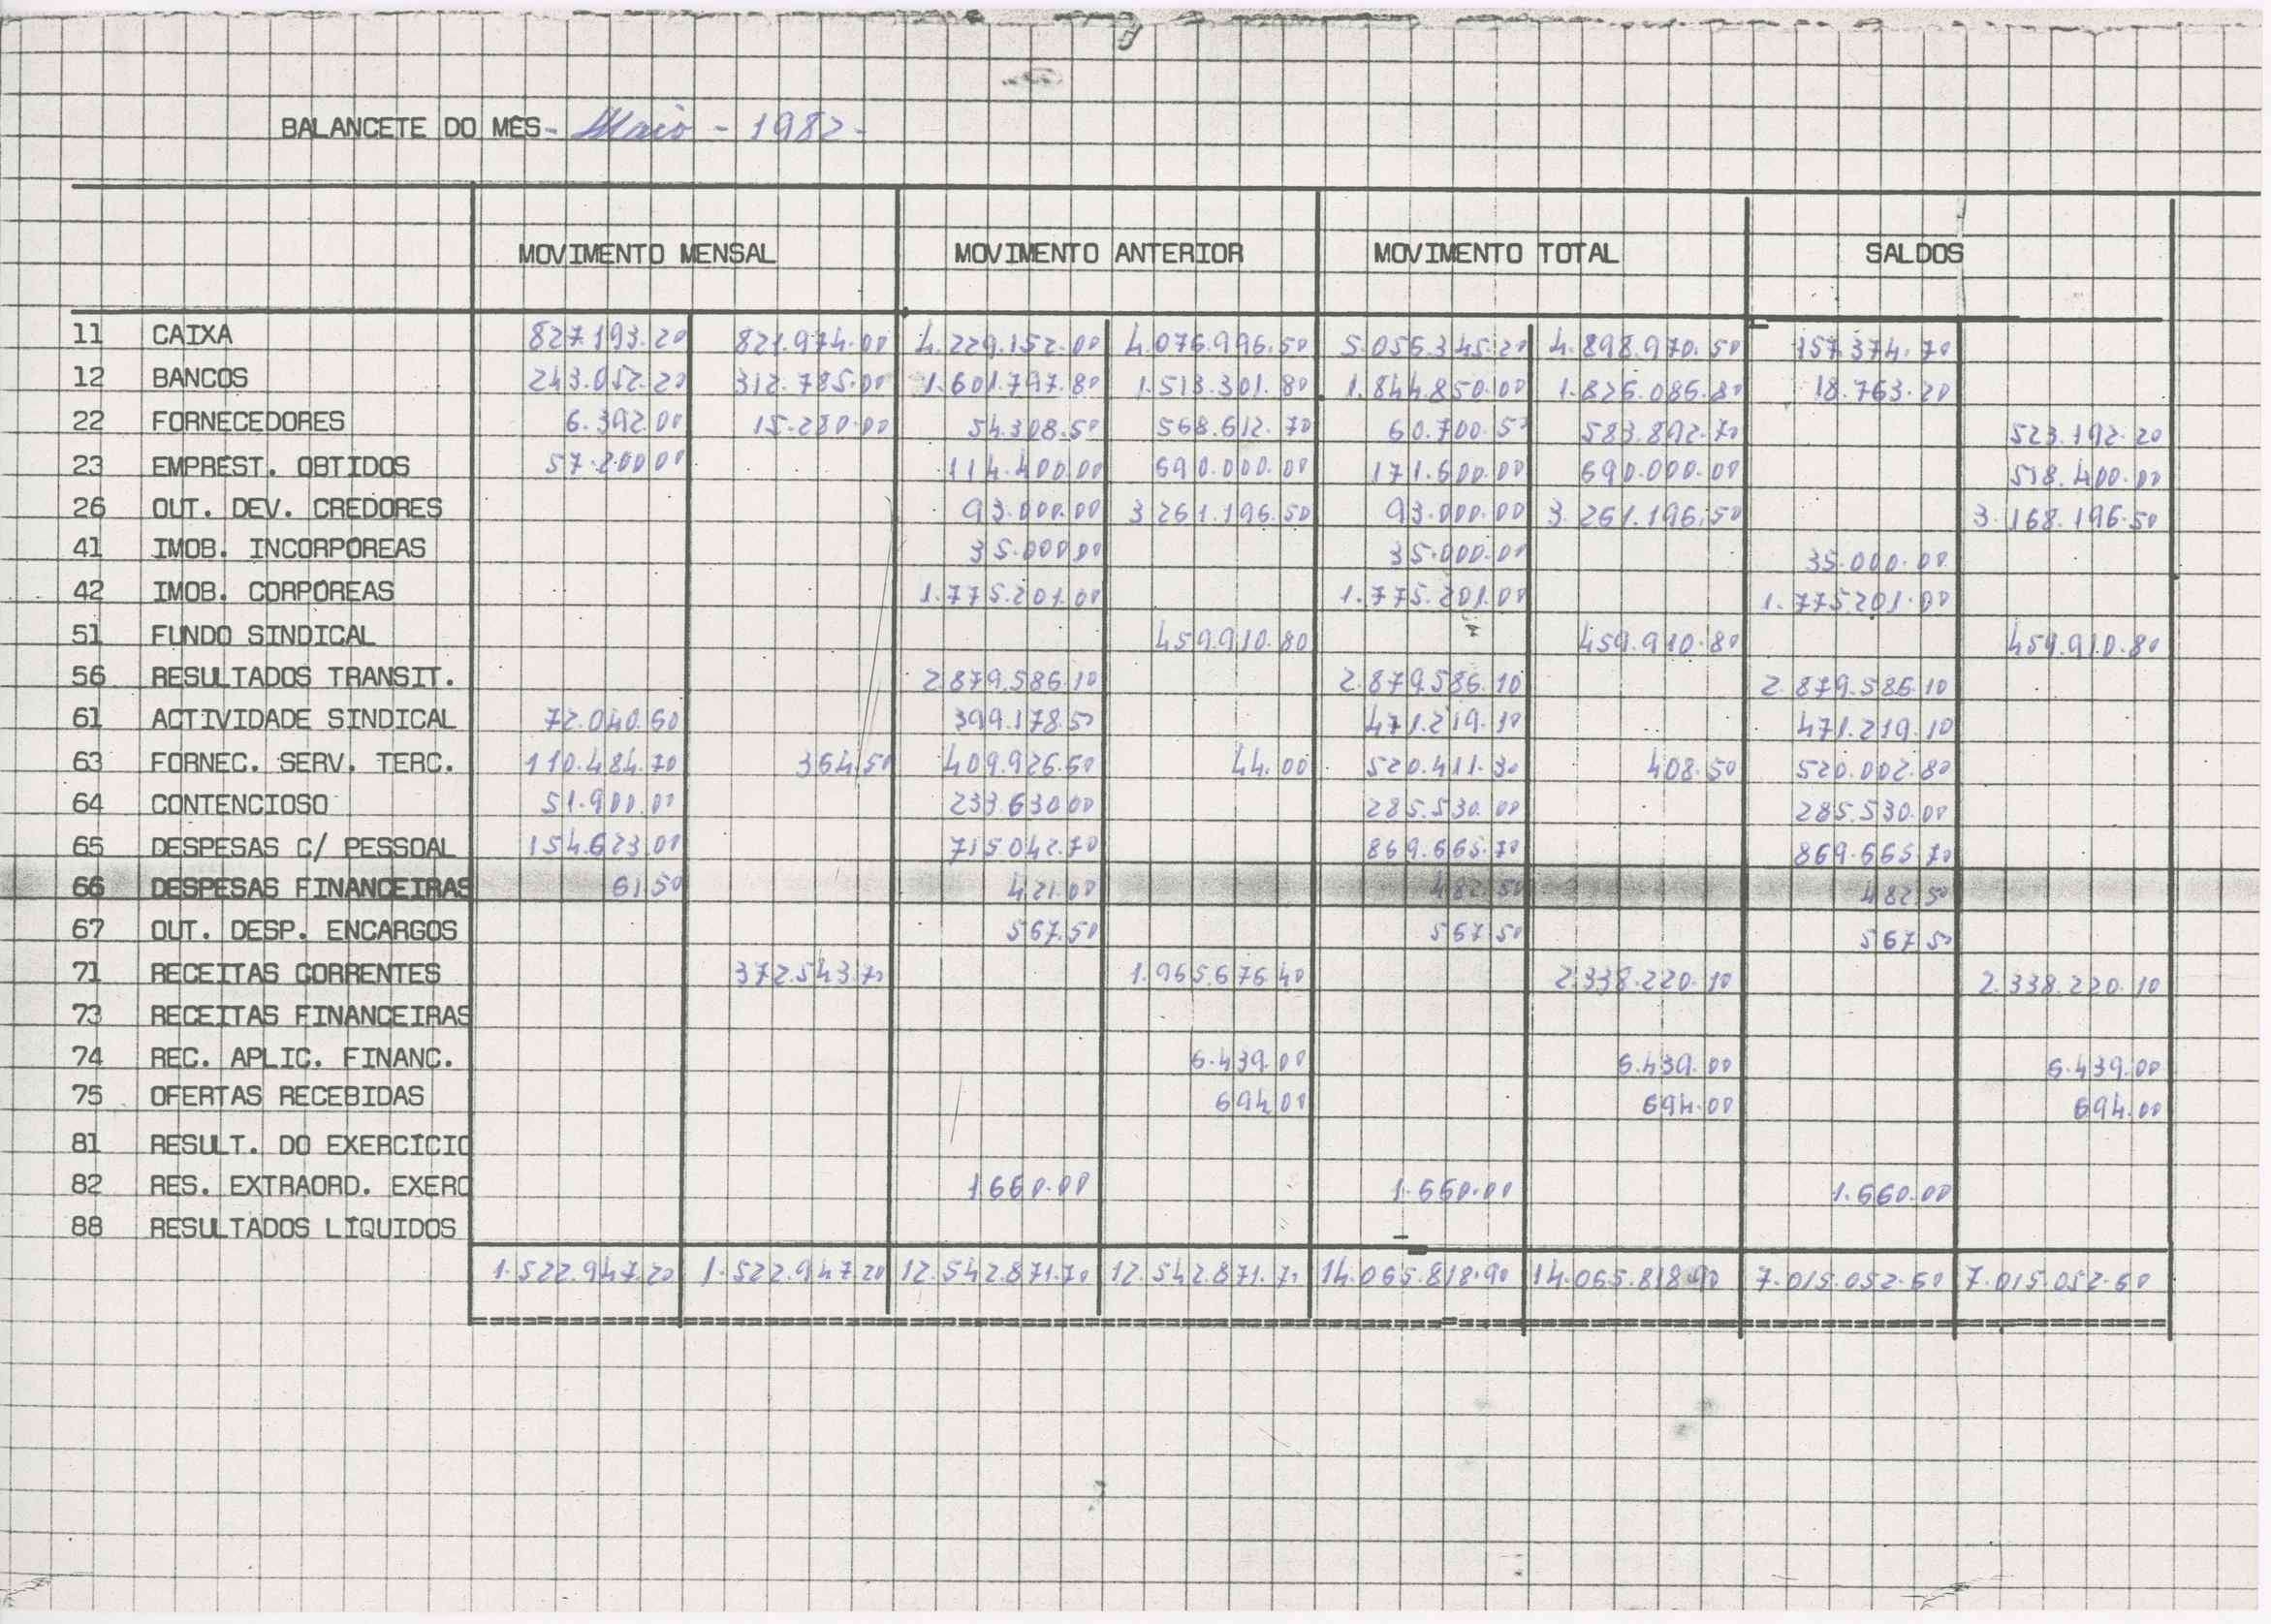 BALANCETE DO MÊS - Maio - 1982 -
MOVIMENTO MENSAL MOVIMENTO ANTERIOR MOVIMENTO TOTAL SALDOS
11 CAIXA 827.193.20 821.974.00 4.229.152.00 4.076.996.50 5.056.345.20 4.898.970.50 157.374.70
12 BANCOS 243.052.20 312.785.00 1.601.797.80 1.513.301.80 1.844.850.00 1.826.086.80 18.763.20
22 FORNECEDORES 6.392.00 15.280.00 54.308.50 568.612.70 60.700.50 583.892.70 523.192.20
23 EMPREST. OBTIDOS 57.200.00 114.400.00 690.000.00 171.600.00 690.000.00 518.400.00
26 OUT. DEV. CREDORES 93.000.00 3.261.196.50 93.000.00 3.261.196.50 3.168.196.50
41 IMOB. INCORPÓREAS 35.000.00 35.000.00 35.000.00
42 IMOB. CORPÓREAS 1.775.201.00 1.775.201.00 1.775.201.00
51 FUNDO SINDICAL 459.910.80 459.910.80 459.910.80
56 RESULTADOS TRANSIT. 2.879.586.10 2.879.586.10 2.879.586.10
61 ACTIVIDADE SINDICAL 72.040.60 399.178.50 471.219.10 471.219.10
63 FORNEC. SERV. TERC. 110.484.70 364.50 409.926.60 44.00 520.411.30 408.50 520.002.80
64 CONTENCIOSO 51.900.00 233.630.00 285.530.00 285.530.00
65 DESPESAS C/ PESSOAL 154.623.00 715.042.70 869.665.70 869.665.70
66 DESPESAS FINANCEIRAS 61.50 421.00 482.50 482.50
67 OUT. DESP. ENCARGOS 567.50 567.50 567.50
71 RECEITAS CORRENTES 372.543.70 1.965.676.40 2.338.220.10 2.338.220.10
73 RECEITAS FINANCEIRAS
74 REC. APLIC. FINANC. 6.439.00 6.439.00 6.439.00
75 OFERTAS RECEBIDAS 694.00 694.00 694.00
81 RESULT. DO EXERCÍCIO
82 RES. EXTRAORD. EXERC 1660.00 1.660.00 1.660.00
88 RESULTADOS LÍQUIDOS
1.522.947.20 1.522.947.20 12.542.871.70 12.542.871.70 14.065.818.90 14.065.818.90 7.015.052.60 7.015.052.60